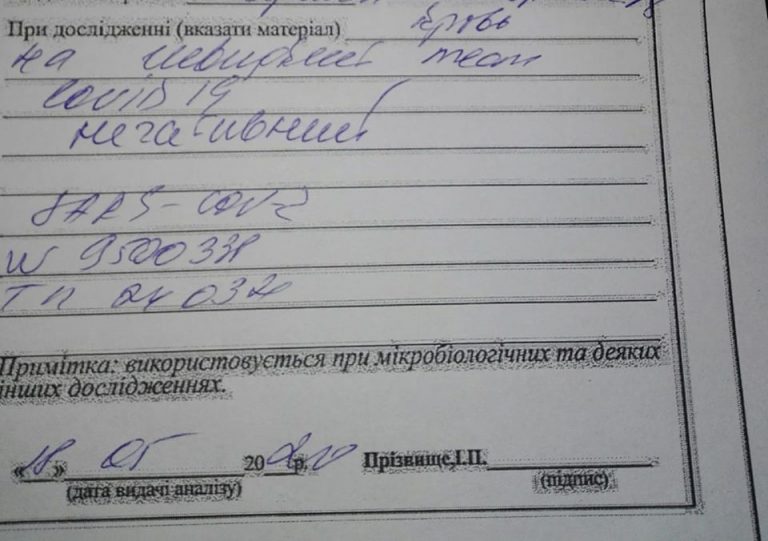 При дослідженні (вказати матеріал) кровь
на швидкий тест
COVID 19
негативний
SARS-COV-2
W 9500338
Примітка: використовується при мікробіологічних та деяких
інших дослідженнях.
«18» 05 2020 р. Прізвище,І.П.
(дата видачі аналізу) (підпис)